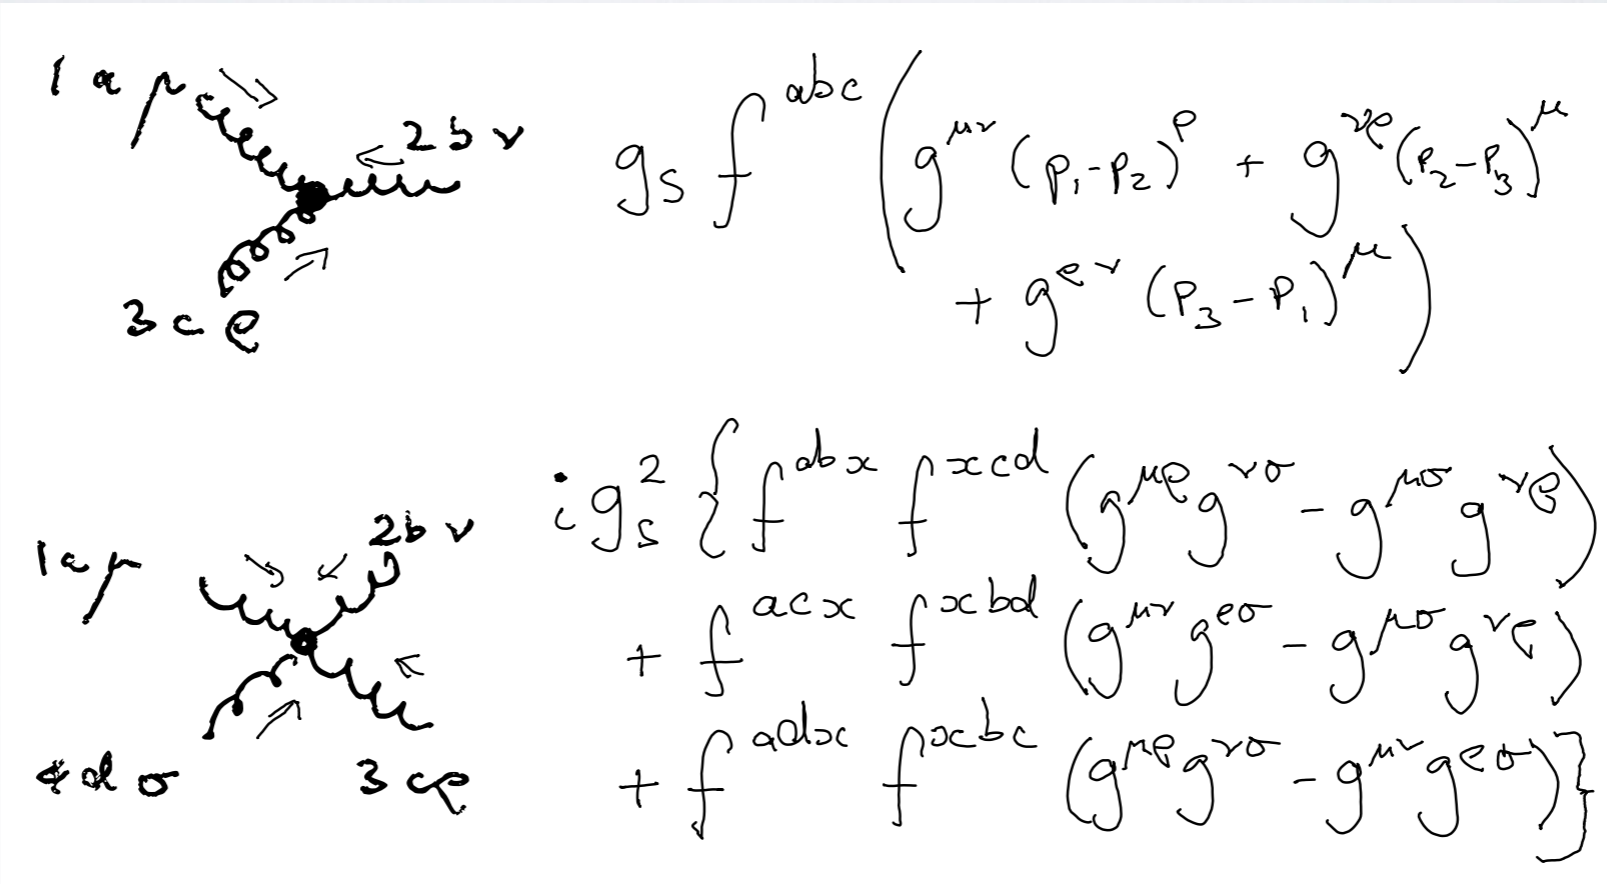 1 a μ
2 b ν
3 c ρ
g_s f^{abc} ( g^{μν} (p_1 - p_2)^ρ + g^{νρ} (p_2 - p_3)^μ
+ g^{ρν} (p_3 - p_1)^μ )
1 a μ
2 b ν
4 d σ
3 c ρ
i g_s^2 { f^{abx} f^{xcd} ( g^{μρ} g^{νσ} - g^{μσ} g^{νρ} )
+ f^{acx} f^{xbd} ( g^{μν} g^{ρσ} - g^{μσ} g^{νρ} )
+ f^{adx} f^{xbc} ( g^{μρ} g^{νσ} - g^{μν} g^{ρσ} ) }